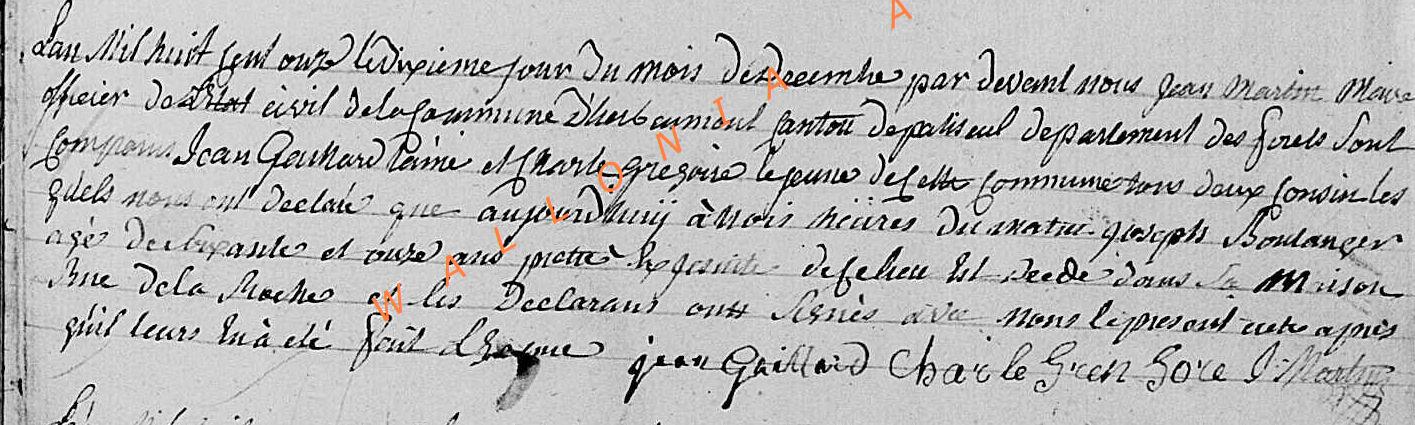 L'an Mil huit cent onze le dixieme jour du mois de decembre par devant nous Jean Martin Maire
officier de L'Etat civil de la Commune D'herbeumont Canton de paliseul departement des forets sont
Comparus Jean Gaillard l'ainé et Charle gregoire le jeune de cette Commune tous deux Cousin les
quels nous ont declaré que aujourdhuij à trois heüres du matin joseph Boulanger
agé de soixante et onze ans prettre de ce lieu Est decedé dans sa Maison
Rüe de la Roche et les Declarans ont signés avec nous le present acte apres
quil leurs en à eté fait
jean Gaillard Charle Gren Gore J: Martin
WALLONIA
A